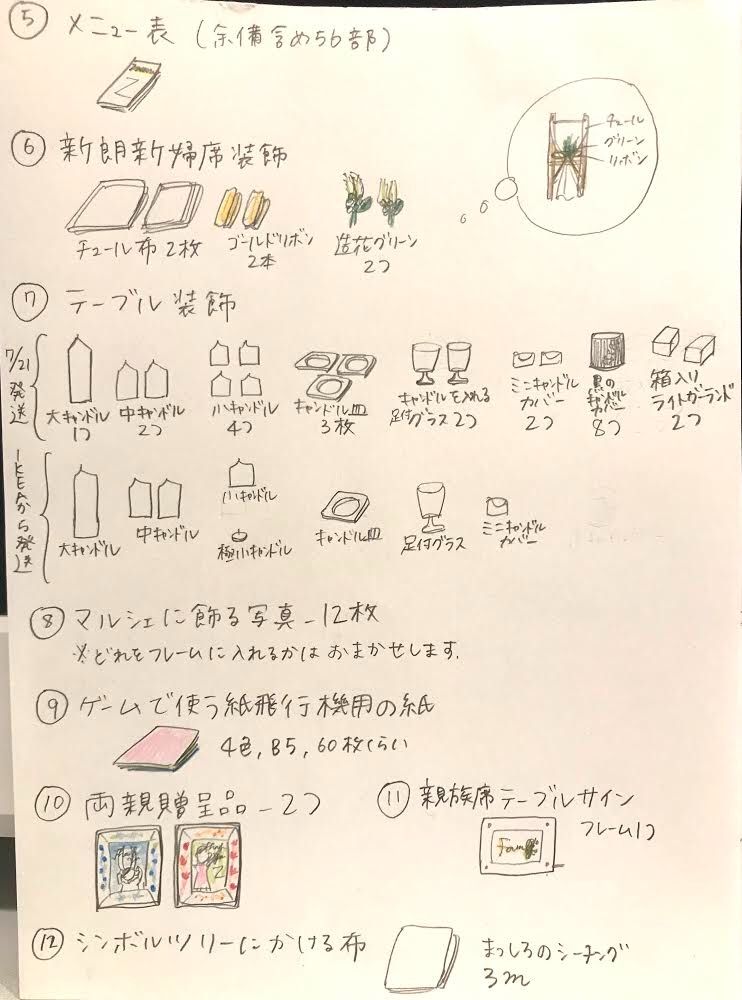 ⑤ メニュー表 (余備含め56部)
チュール
グリーン
リボン
⑥ 新朗新婦席装飾
チュール布 2枚
ゴールドリボン
2本
造花グリーン
2つ
⑦ テーブル装飾
7/21発送
大キャンドル
1つ
中キャンドル
2つ
小キャンドル
4つ
キャンドル皿
3枚
キャンドルを入れる
足付グラス2つ
ミニキャンドル
カバー
2つ
黒の
キャンドル
カバー
8つ
箱入り
ライトガーランド
2つ
IKEAから発送
大キャンドル
中キャンドル
小キャンドル
極小キャンドル
キャンドル皿
足付グラス
ミニキャンドル
カバー
⑧ マルシェに飾る写真_12枚
※どれをフレームに入れるかはおまかせします.
⑨ ゲームで使う紙飛行機用の紙
4色, B5, 60枚くらい
⑩ 両親贈呈品_2つ
⑪ 親族席テーブルサイン
フレーム1つ
⑫ シンボルツリーにかける布
まっしろのシーチング
3m